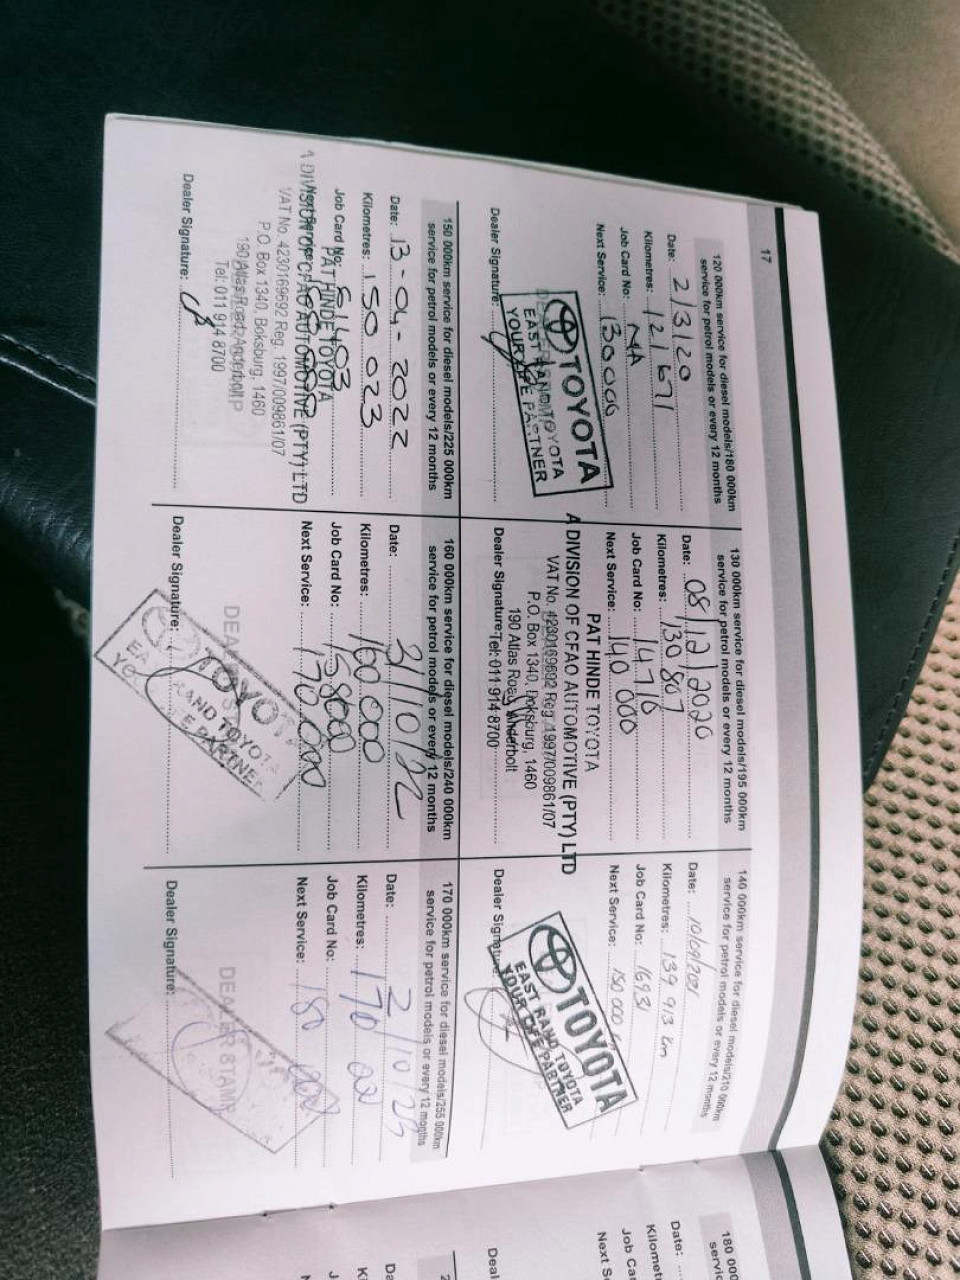 17
120 000km service for diesel models/180 000km
service for petrol models or every 12 months
Date: 2/3/20
Kilometres: 121671
Job Card No: NA
Next Service: 130000
TOYOTA
EAST RAND TOYOTA
YOUR LIFE PARTNER
Dealer Signature:
130 000km service for diesel models/195 000km
service for petrol models or every 12 months
Date: 08/12/2020
Kilometres: 130 807
Job Card No: 14716
Next Service: 140 000
PAT HINDE TOYOTA
A DIVISION OF CFAO AUTOMOTIVE (PTY) LTD
VAT No. 4230169692 Reg. 1997/009861/07
P.O. Box 1340, Boksburg, 1460
190 Atlas Road, Anderbolt
Dealer Signature: Tel: 011 914 8700
140 000km service for diesel models/210 000km
service for petrol models or every 12 months
Date: 10/09/2021
Kilometres: 139 913 km
Job Card No: 16931
Next Service: 150 000
TOYOTA
EAST RAND TOYOTA
YOUR LIFE PARTNER
Dealer Signature:
150 000km service for diesel models/225 000km
service for petrol models or every 12 months
Date: 13-04-2022
Kilometres: 150 023
Job Card No:
PAT HINDE TOYOTA
Next Service:
A DIVISION OF CFAO AUTOMOTIVE (PTY) LTD
VAT No. 4230169692 Reg. 1997/009861/07
P.O. Box 1340, Boksburg, 1460
190 Atlas Road, Anderbolt
Tel: 011 914 8700
Dealer Signature:
160 000km service for diesel models/240 000km
service for petrol models or every 12 months
Date: 31/10/22
Kilometres: 160 000
Job Card No:
Next Service: 170 000
DEALER'S
TOYOTA
RAND TOYOTA
PARTNER
Dealer Signature:
170 000km service for diesel models/255 000km
service for petrol models or every 12 months
Date: 2/10/23
Kilometres: 170 000
Job Card No:
Next Service: 180 000
DEALER STAMP
Dealer Signature:
180 000
servic
Date:
Kilomet
Job Ca
Next S
Deal
2
Da
Ki
J
N